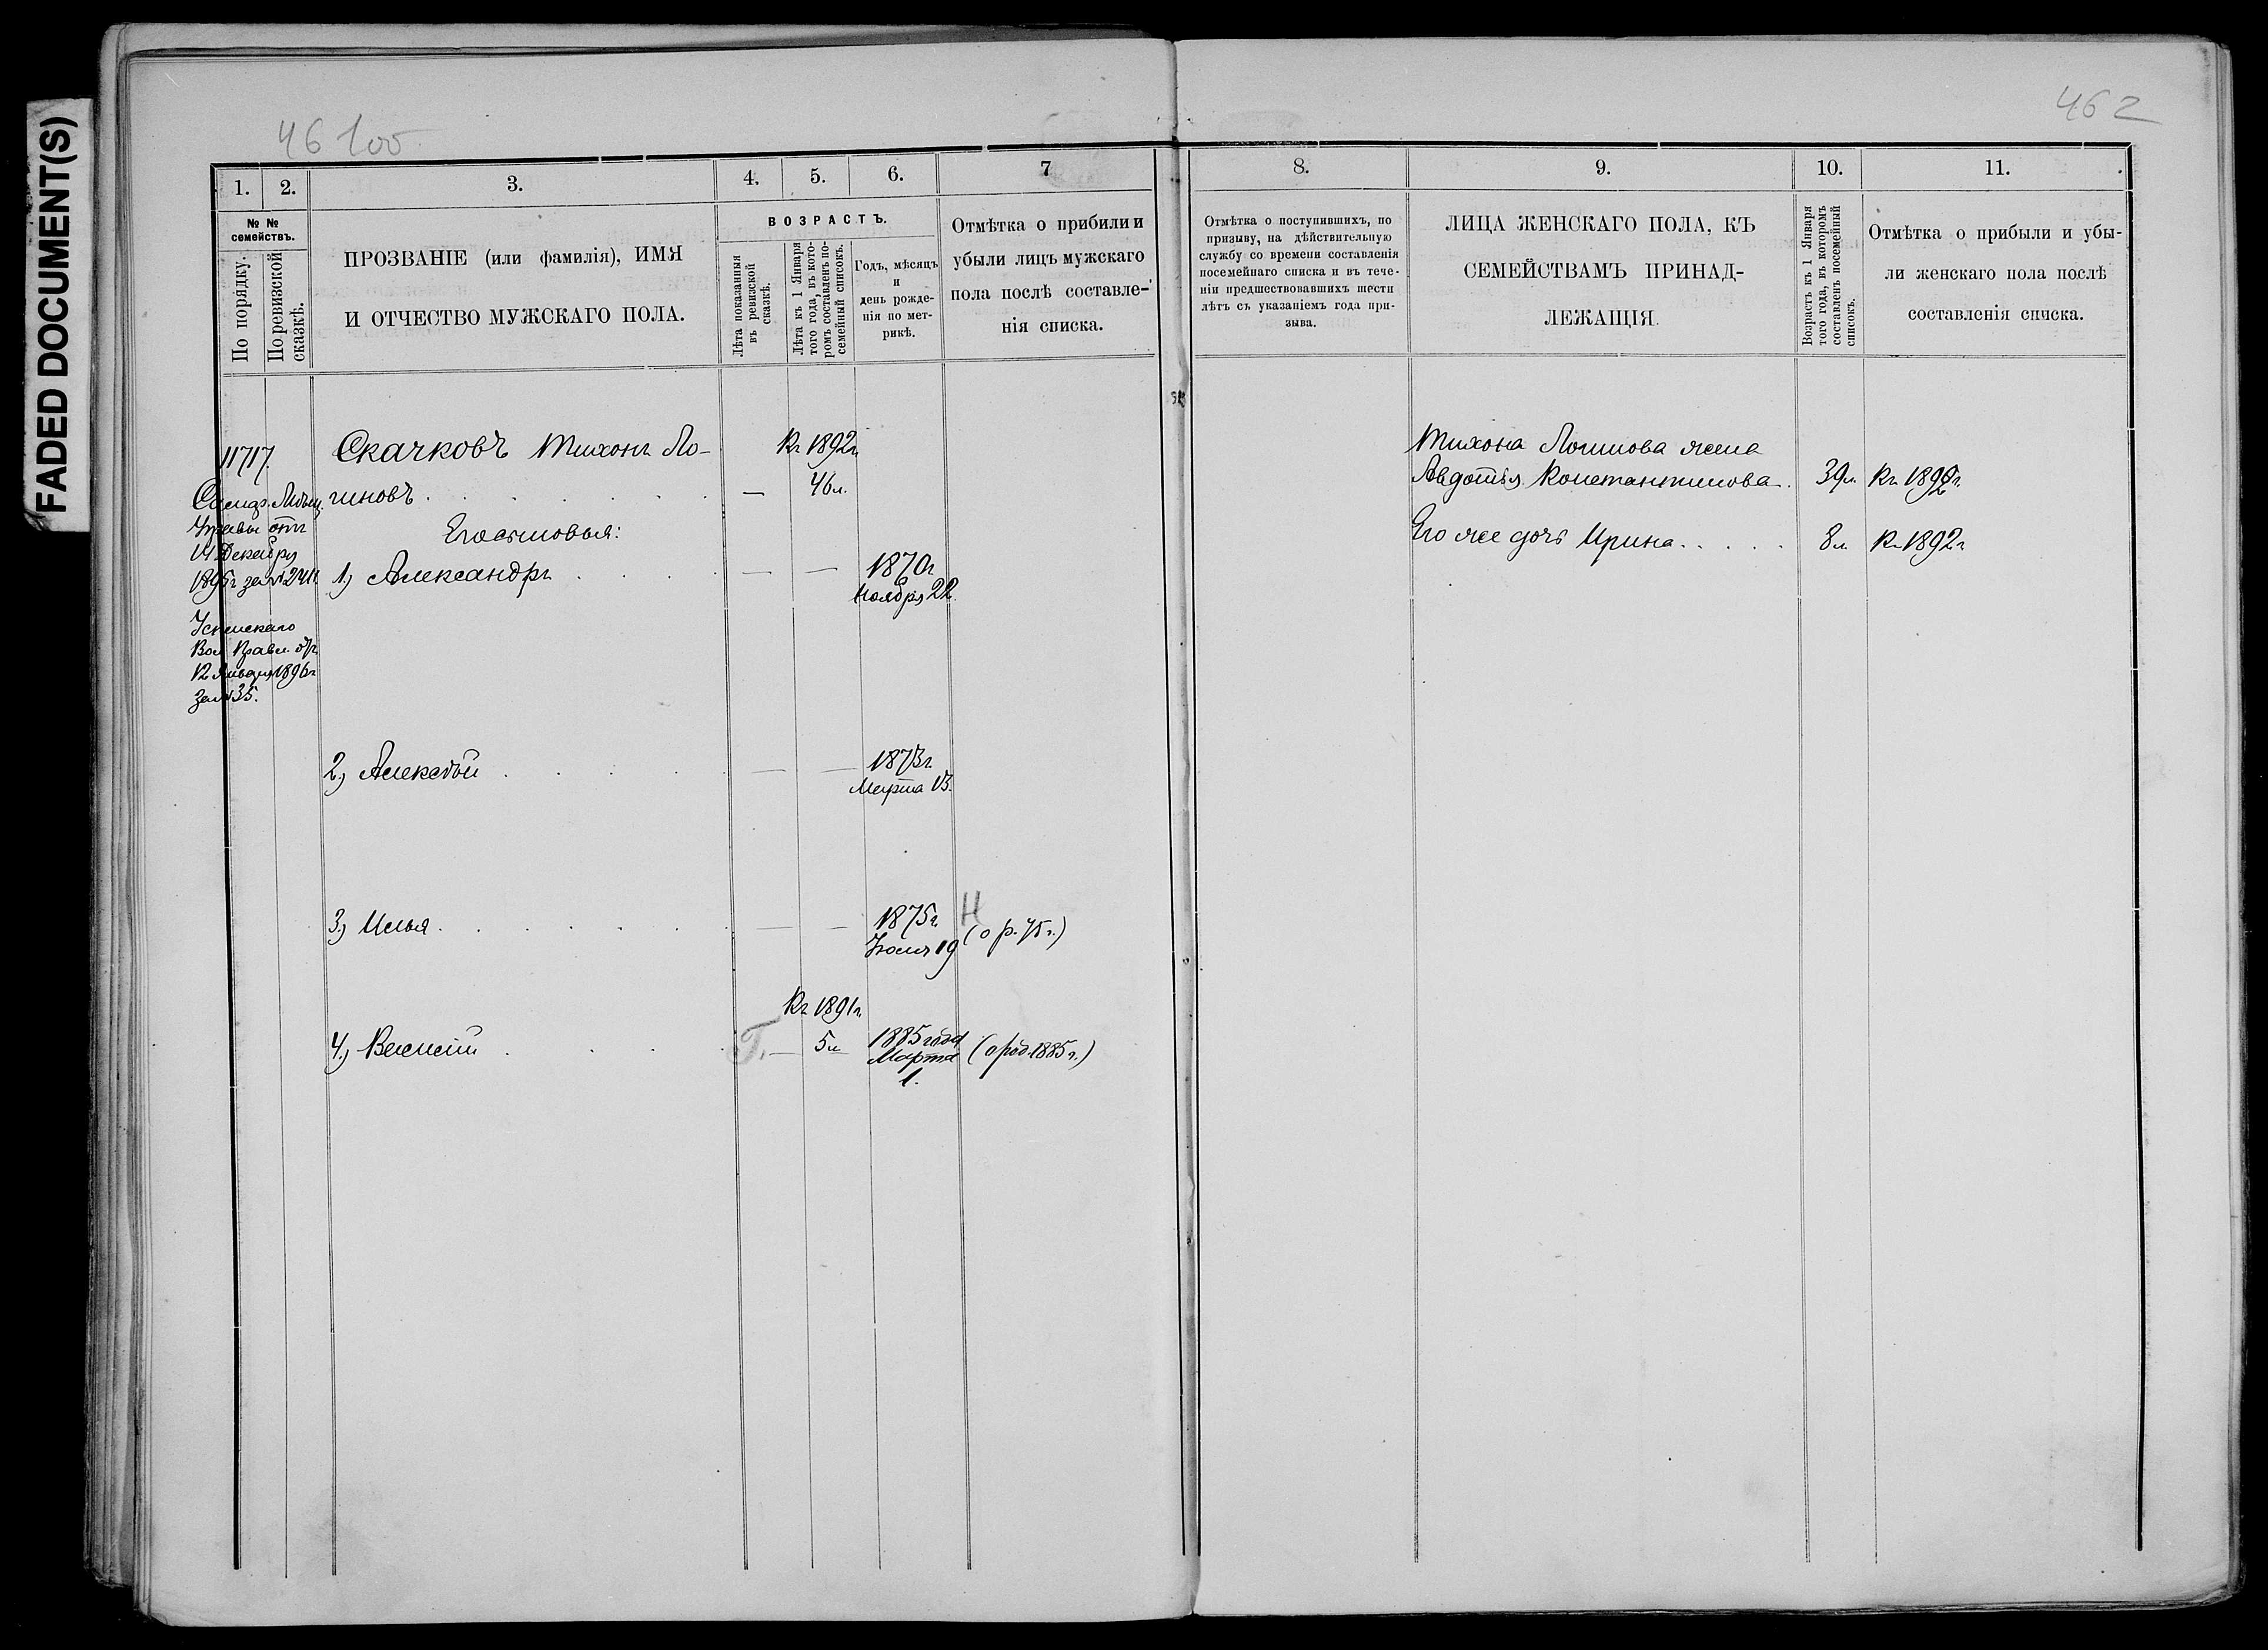 FADED DOCUMENT(S)
46 100
462
1.
2.
3.
4.
5.
6.
7
№ №
семействъ.
По порядку.
По ревизской
сказкѣ.
ПРОЗВАНІЕ (или фамилія), ИМЯ
И ОТЧЕСТВО МУЖСКАГО ПОЛА.
ВОЗРАСТЪ.
Лѣта показанныя
въ ревизской
сказкѣ.
Лѣта къ 1 Января
того года, въ кото-
ромъ составленъ по-
семейный списокъ.
Годъ, мѣсяцъ
и
день рожде-
нія по мет-
рикѣ.
Отмѣтка о прибили и
убыли лицъ мужскаго
пола послѣ составле-
нія списка.
11717.
Скачковъ Тихонъ Ло-
гиновъ
Къ 1892г.
—
46л.
Управы отъ
14 Декабря
1895г за № 2411
Вол Правл. отъ
12 Января 1896г
за № 35.
Его сыновья:
1) Александръ
— —
1870г
Ноября 22
2) Алексѣй
— —
1873г.
Марта 13.
3) Илья
— —
1875г.
Іюля 19
Н
(о р. 75 г.)
Къ 1891г.
4) Василій
Г. —
5л
1885 года
Марта
1.
(о род. 1885 г.)
8.
9.
10.
11.
Отмѣтка о поступившихъ, по
призыву, на дѣйствительную
службу со времени составленія
посемейнаго списка и въ тече-
ніи предшествовавшихъ шести
лѣтъ съ указаніемъ года при-
зыва.
ЛИЦА ЖЕНСКАГО ПОЛА, КЪ
СЕМЕЙСТВАМЪ ПРИНАД-
ЛЕЖАЩІЯ.
Возрастъ къ 1 Января
того года, въ которомъ
составленъ посемейный
списокъ.
Отмѣтка о прибыли и убы-
ли женскаго пола послѣ
составленія списка.
Тихона Логинова жена
Авдотья Константинова
39л. Къ 1892г.
Его же дочь Ирина
8л. Къ 1892г